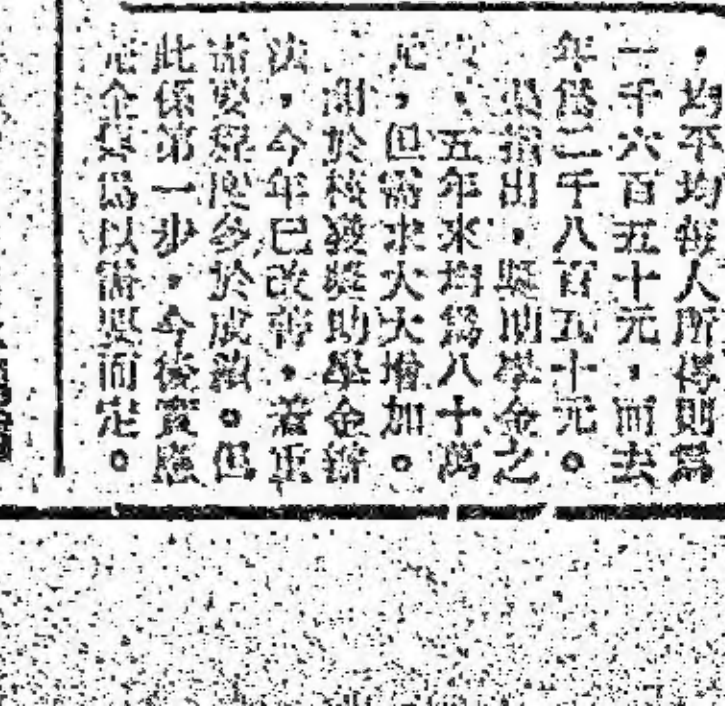 ，均平均每人所得則爲
一千六百五十元，而去
年爲二千八百五十元。
指出，獎助學金之
五年來均爲八十萬
元，但需求大大增加。
關於核發獎助學金辦
法，今年已改善，着重
需要程度多於成績。但
此係第一步，今後實應
完全發爲以需要而定。